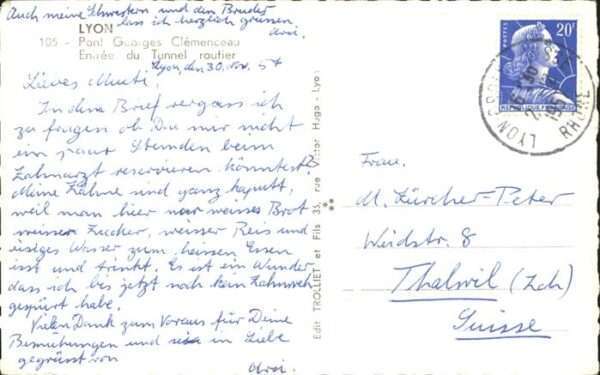 Auch meine Schwestern und den Bruder
lass ich herzlich grüssen
LYON
105 - Pont Georges Clémenceau
Entrée du Tunnel routier
Lyon, den 30. Nov. 57
Liebes Mutti,
In dem Brief vergass ich
zu fragen ob Du mir nicht
ein paar Stunden beim
Zahnarzt reservieren könntest?
Meine Zähne sind ganz kaputt,
weil man hier nur weisses Brot
weisser Zucker, weisser Reis und
eisiges Wasser zum heissen Essen
isst und trinkt. Es ist ein Wunder
dass ich bis jetzt noch kein Zahnweh
gespürt habe.
Vielen Dank zum Voraus für Deine
Bemühungen und in Liebe
gegrüsst von
Edit TROLLIET et Fils 35, rue Victor Hugo - Lyon
POSTES
20F
REPUBLIQUE FRANCAISE
LYON
RHONE
Frau.
M. Zürcher-Peter
Weidstr. 8
Thalwil (Zch)
Suisse